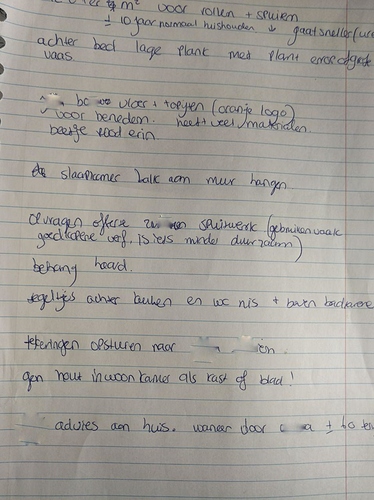 m² voor rollen + spuiten
± 10 jaar normaal huishouden ↓ gaat sneller
achter bed lage plank met plant erop
vaas.
vloer + tapijten (oranje logo)
voor beneden. heeft veel materialen.
beetje rood erin
slaapkamer balk aan muur hangen
opvragen offerte spuitwerk (gebruiken vaak
goedkopere verf. is iets minder duurzaam)
behang haard.
tegeltjes achter keuken en wc nis + boven badkamer
tekeningen opsturen naar
geen hout in woonkamer als kast of blad!
advies aan huis. wanneer door a ± 60